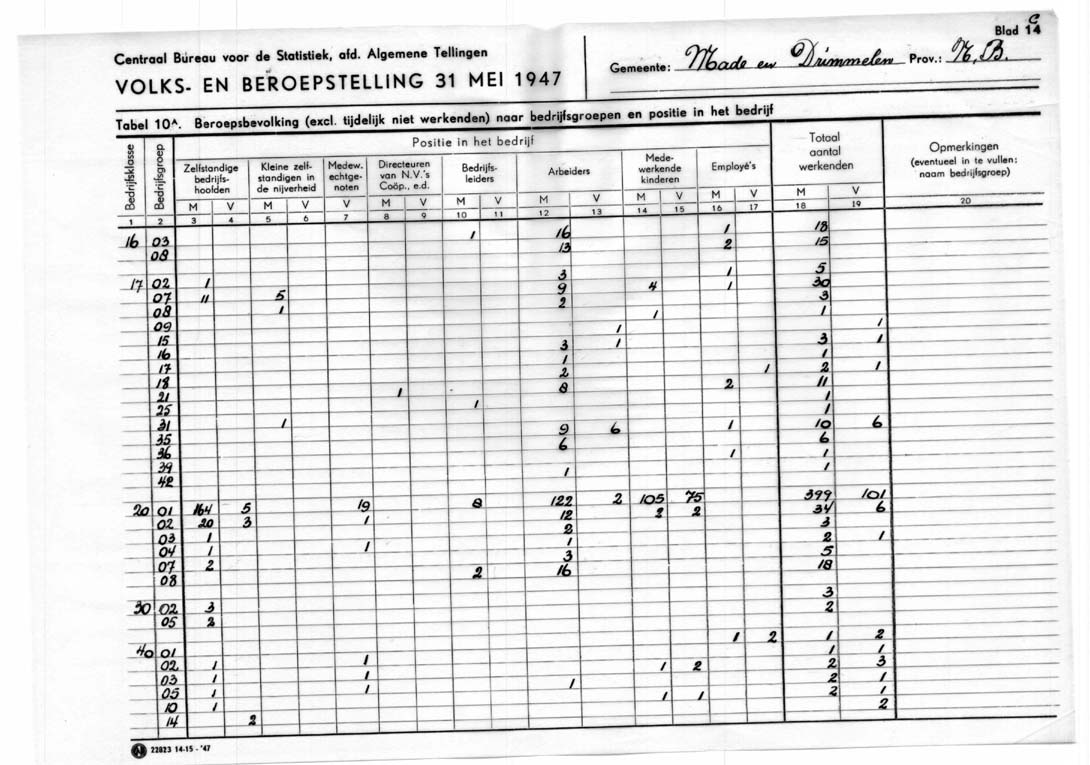 Blad 14 C
Centraal Bureau voor de Statistiek, afd. Algemene Tellingen
VOLKS- EN BEROEPSTELLING 31 MEI 1947
Gemeente: Made en Drimmelen Prov.: N.B.
Tabel 10A. Beroepsbevolking (excl. tijdelijk niet werkenden) naar bedrijfsgroepen en positie in het bedrijf
Bedrijfsklasse Bedrijfsgroep Positie in het bedrijf Totaal aantal werkenden Opmerkingen (eventueel in te vullen: naam bedrijfsgroep)
Zelfstandige bedrijfshoofden Kleine zelfstandigen in de nijverheid Medew. echtgenoten Directeuren van N.V.'s Coöp., e.d. Bedrijfsleiders Arbeiders Medewerkende kinderen Employé's
M V M V V M V M V M V M V M V M V
1 2 3 4 5 6 7 8 9 10 11 12 13 14 15 16 17 18 19 20
16 03 1 16 1 18
08 13 2 15
17 02 1 3 1 5
07 11 5 9 4 1 30
08 1 2 3
09 1 1
15 1 1
16 3 1 3 1
17 1 1
18 2 1 2 1
21 1 8 2 11
25 1 1
31 1 1
35 9 6 1 10 6
36 6 6
39 1 1
42 1 1
20 01 164 5 19 8 122 2 105 75 399 101
02 20 3 1 12 2 2 34 6
03 1 2 3
04 1 1 1 2 1
07 2 3 5
08 2 16 18
30 02 3 3
05 2 2
40 01 1 2 1 2
02 1 1 1 1
03 1 1 1 2 2 3
05 1 1 1 2 1
10 1 1 1 2 1
14 2 2
22823 14-15 - '47